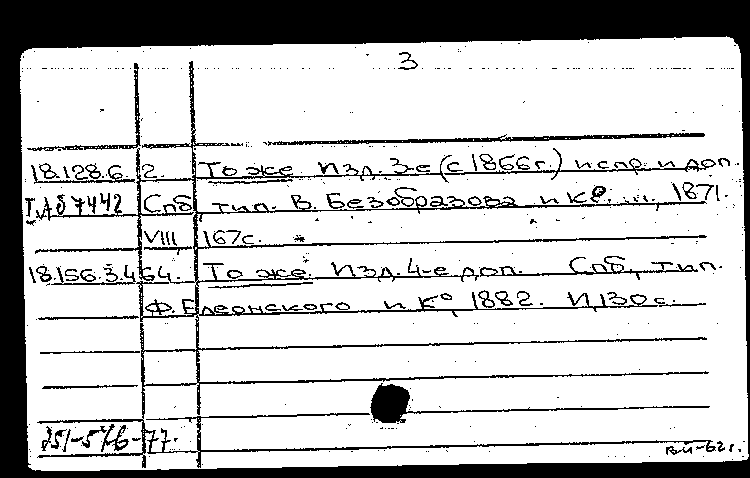 3
18.128.6.2. То же Изд. 3-е (с 1866г.) испр. и доп.
Т.Аб 7442 Спб, тип. В. Безобразова и К°. ..., 1871.
VIII, 167с. *
18.156.3.464. То же. Изд. 4-е доп. Спб, тип.
Ф. Елеонского и К°, 1882. II, 130 с.
351-546-77.
вй-62г.